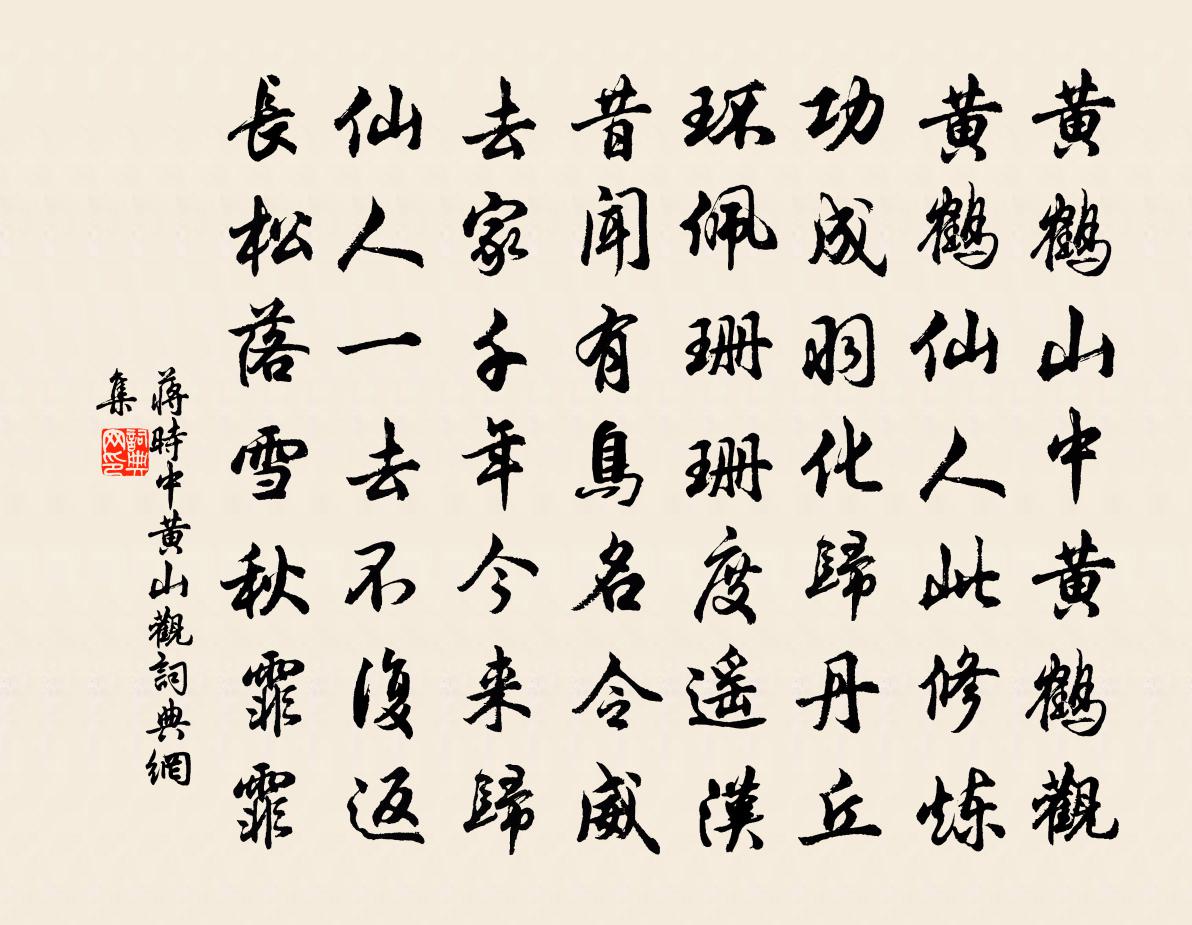 黄鹤山中黄鹤觀
黄鹤仙人此修炼
功成羽化歸丹丘
环佩珊珊度遥漢
昔聞有鳥名令威
去家千年今来歸
仙人一去不復返
長松落雪秋霏霏
蔣時中黄山觀詞典網
集
詞典
网印